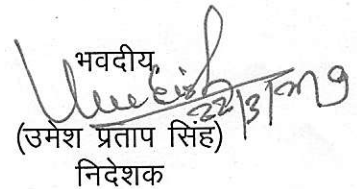 भवदीय,
22/3/2019
(उमेश प्रताप सिंह)
निदेशक